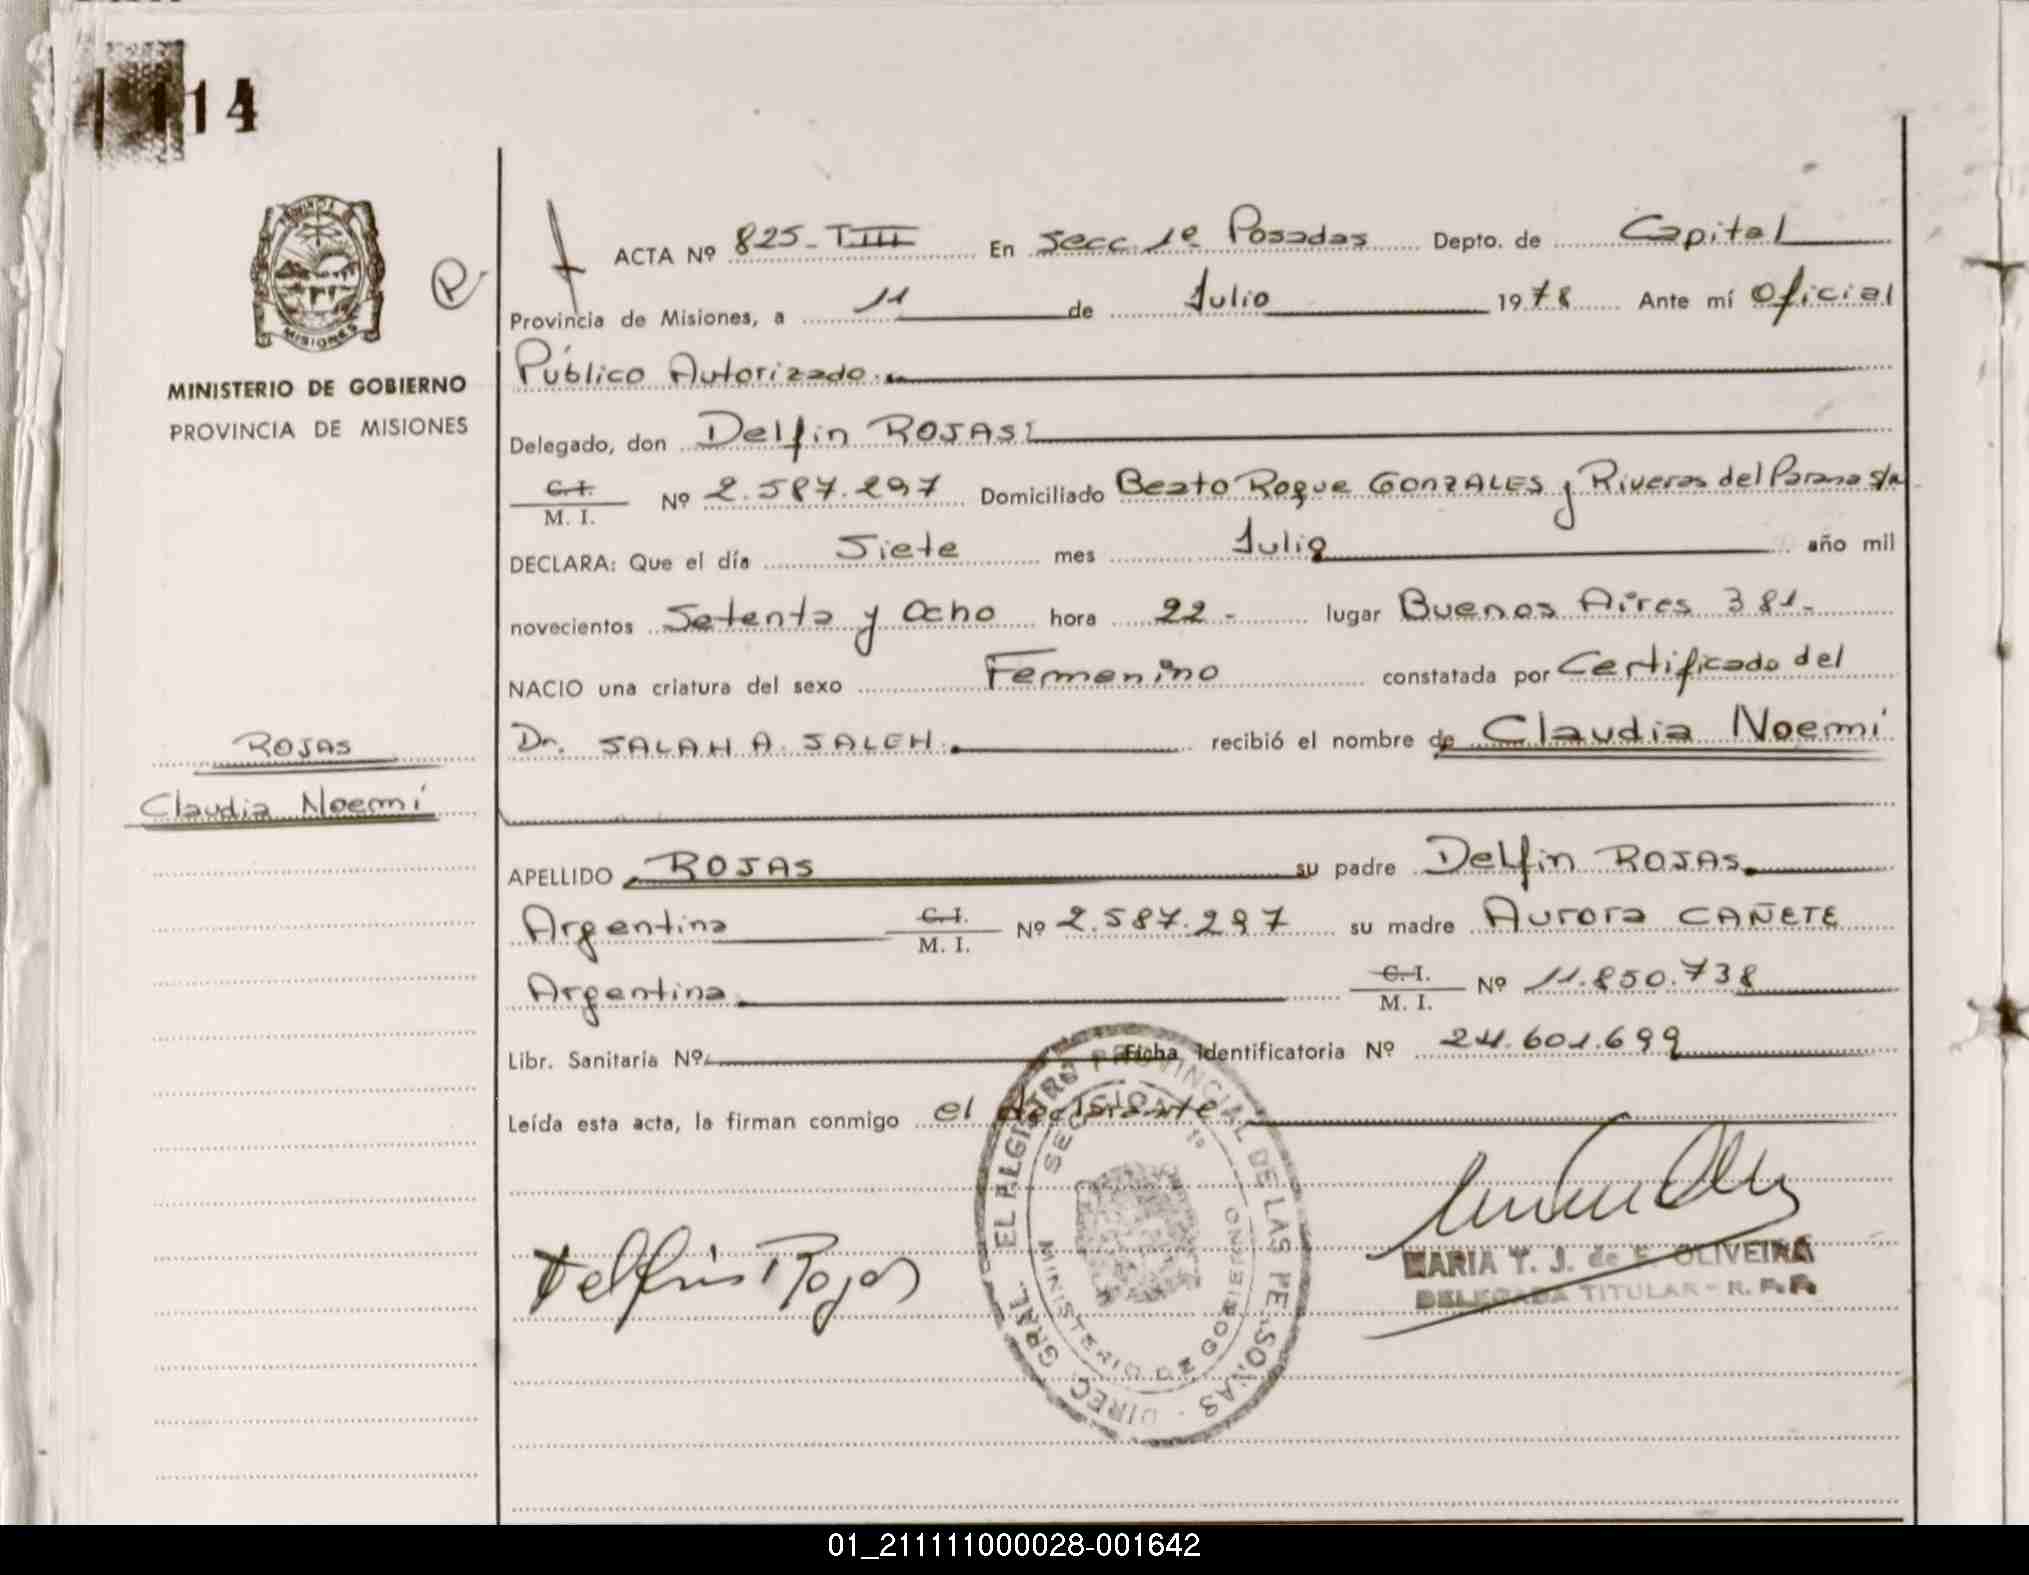 114
PROVINCIA DE
MISIONES
MINISTERIO DE GOBIERNO
PROVINCIA DE MISIONES
ROJAS
Claudia Noemí
ACTA Nº 825-TIII En Secc. 1º Posadas Depto. de Capital
Provincia de Misiones, a 11 de Julio 1978 Ante mí Oficial
Público Autorizado.
Delegado, don Delfin ROJAS:
C.I. M. I. Nº 2.587.297 Domiciliado Beato Roque GONZALES y Riveras del Parana s/n
DECLARA: Que el día Siete mes Julio año mil
novecientos Setenta y Ocho hora 22- lugar Buenos Aires 381-
NACIO una criatura del sexo Femenino constatada por Certificado del
Dr. SALAH A. SALEH. recibió el nombre de Claudia Noemí
APELLIDO ROJAS su padre Delfin ROJAS
Argentina C.I. M. I. Nº 2.587.297 su madre Aurora CAÑETE
Argentina C.I. M. I. Nº 11.850.738
Libr. Sanitaria Nº Ficha Identificatoria Nº 24.601.699
Leída esta acta, la firman conmigo el declarante
Delfin Rojas
DIREC. GRAL. DEL REGISTRO PROVINCIAL DE LAS PERSONAS
SECCION 1º
MINISTERIO DE GOBIERNO
MARIA T. J. de F. OLIVEIRA
DELEGADA TITULAR - R. P. P.
01_211111000028-001642